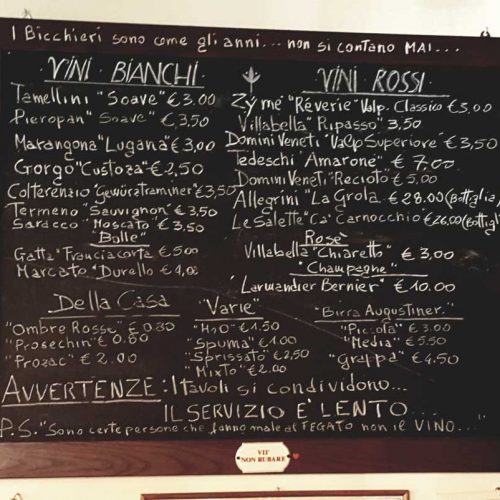 I Bicchieri sono come gli anni... non si contano MAI...
VINI BIANCHI
Tamellini "Soave" €3,00
Pieropan "Soave" €3,50
Marangona "Lugana" €3,00
Gorgo "Custoza" €2,50
Colterenzio "Gewürztraminer" €3,50
Termeno "Sauvignon" €3,50
Saracco "Moscato" €3,50
"Bolle"
Gatta "Franciacorta" €5,00
Marcato "Durello" €4,00
VINI ROSSI
Zÿmē "Rêverie" Valp. Classico €3,00
Villabella "Ripasso" 3,50
Domini Veneti "Valp Superiore" €3,50
Tedeschi "Amarone" € 7,00
Domini Veneti "Recioto" €5,00
Allegrini "La Grola" €28,00 (Bottiglia)
Le Salette "Ca' Carnocchio" €26,00 (Bottiglia)
Rosè
Villabella "Chiaretto" € 3,00
"Champagne"
"Larmandier Bernier" €10,00
Della Casa
"Ombre Rosse" € 0.80
"Prosechin" € 0.80
"Prozac" € 2.00
"Varie"
"H2O" €1.50
"Spuma" €1.00
"Sprissato" €2,50
"MixTo" € 2.00
"Birra Augustiner"
"Piccola" € 3.00
"Media" € 5.50
"Grappa" €4.50
AVVERTENZE: I tavoli si condividono...
IL SERVIZIO E' LENTO...
P.S. "Sono certe persone che fanno male al FEGATO non il VINO..."
VII°
NON RUBARE